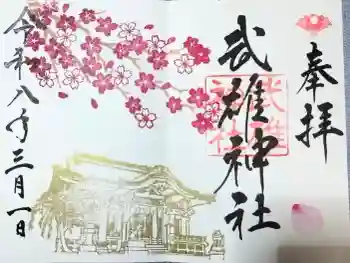 奉拝
武雄神社
武雄神社
令和八年三月一日